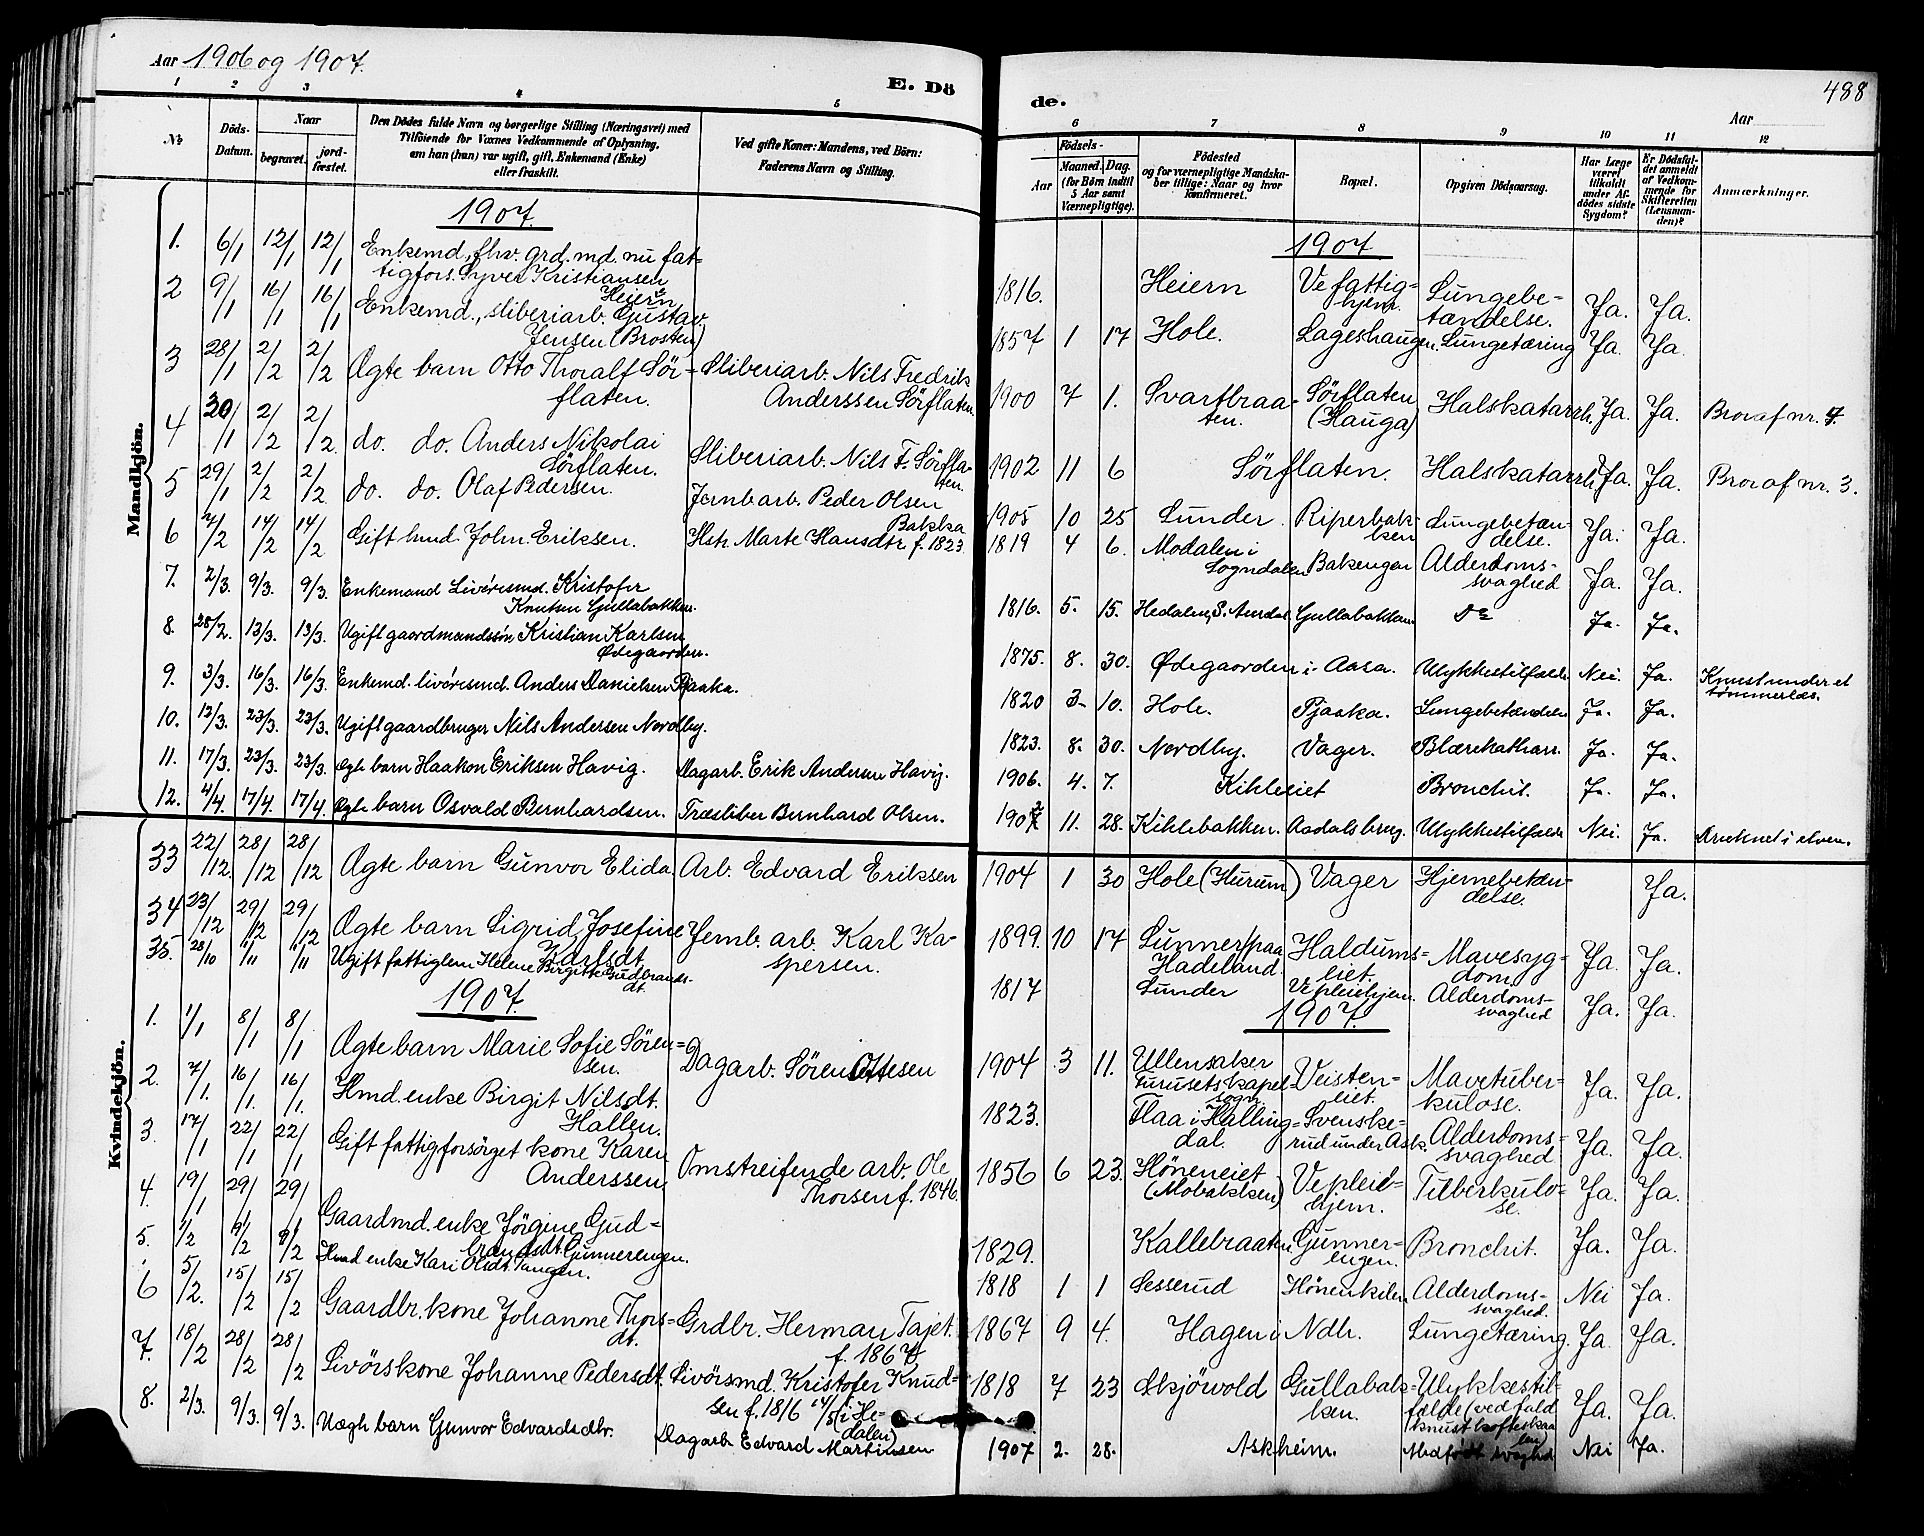 Aar 1906 og 1907.
E. Dö
de.
488
Aar
1 2 3 4 5 6 7 8 9 10 11 12
№
Döds-Datum.
Naar
begravet.
jordfæstet.
Den Dödes fulde Navn og borgerlige Stilling (Næringsvei) med
Tilföiende for Voxnes Vedkommende af Oplysning,
om han (hun) var ugift, gift, Enkemand (Enke)
eller fraskilt.
Ved gifte Koner: Mandens, ved Börn:
Faderens Navn og Stilling.
Födsels-
Aar
Maaned. Dag.
(for Börn indtil
5 Aar samt
Værnepligtige).
Födested
og for værnepligtige Mandskaber tillige: Naar og hvor
Konfirmeret.
Bopæl.
Opgiven Dödsaarsag.
Har Læge
været
tilkaldt
under Afdödes sidste
Sygdom?
Er Dödsfaldet anmeldt
af Vedkommende for
Skifteretten
(Lensmanden)?
Anmærkninger.
Mandkjön.
1907.
1907
1. 6/1 12/1 12/1 Enkemd., fhv. grd. md. nu fattigfors. Syver Kristiansen Heiern 1816. Heiern Ve fattighjem. Lungebetændelse. Ja. Ja.
2 9/1 16/1 16/1 Enkemd., sliberiarb. Gustav Jensen (Brosten) 1857 1 17 Hole. Lageshaugen. Lungetæring Ja. Ja.
3 28/1 2/2 2/2 Ægte barn Otto Thoralf Sörflaten. Sliberiarb. Nils Fredrik Anderssen Sörflaten. 1900 7 1. Svartbraaten. Sörflaten (Hauga) Halskatarrh. Ja. Ja. Bror af nr. 4.
4 30/1 2/2 2/2 do. do. Anders Nikolai Sörflaten. Sliberiarb. Nils F. Sörflaten. 1902 11 6 Sörflaten. Halskatarrh. Ja. Ja. Bror af nr. 3.
5 29/1 2/2 2/2 do. do. Olaf Pedersen. Jernb arb. Peder Olsen Bakka 1905 10 25 Lunder. Riperbakken Lungebetændelse. Ja. Ja.
6 7/2 14/2 14/2 Gift hmd. John Eriksen. Hstr. Marte Hansdtr f. 1823. 1819 4 6. Modalen i Sogndalen Bakengen Alderdomssvaghed Ja. Ja.
7. 2/3. 9/3. 9/3. Enkemand Livörsmd. Kristofer Knutsen Gullabakken. 1816. 5. 15. Hedalen, S. Aurdal. Gullabakken Do Ja. Ja.
8. 28/2. 13/3. 13/3. Ugift gaardmandssön Kristian Karlsen Ødegaarden. 1875. 8. 30. Ødegaarden i Aasa. Ulykkestilfælde Nei. Ja. Knust under et tömmerlæs.
9. 3/3. 16/3. 16/3. Enkemd. livörsmd. Anders Danielsen Pjaaka. 1820 3. 10. Hole. Pjaaka. Lungebetændelse Ja. Ja.
10. 13/3. 23/3. 23/3. Ugift gaardbruger Nils Andersen Nordby. 1823. 8. 30. Nordby. Vager. Blærekatharr. Ja. Ja.
11. 17/3. 23/3. 23/3. Ægte barn Haakon Eriksen Havig. Dagarb. Erik Andersen Havig. 1906. 4. 7. Kihleeiet Bronchit. Ja. Ja.
12. 4/4. 17/4. 17/4. Ægte barn Osvald Bernhardsen. Træsliber Bernhard Olsen. 1902 11. 28. Kihlebakken. Aadalsbrug. Ulykkestilfælde Nei. Ja. Druknet i elven.
Kvindekjön.
33 22/12. 28/12 28/12 Ægte barn Gunvor Elida Arb. Edvard Eriksen 1904 1 30 Hole (Hurum) Vager Hjernebetændelse. Ja.
34 23/12 29/12 29/12 Ægte barn Sigrid Josefine Karlsdt. Jernb. arb. Karl Kaspersen. 1899. 10 17 Lunner paa Hadeland. Haldumseiet. Mavesygdom. Ja. Ja.
35. 28/10 1/11 1/11 Ugift fattiglem Helene Birgitte Gudbrandsdt. 1817 Lunder Ve pleiehjem. Alderdomssvaghed Ja. Ja.
1907.
1907.
1. 1/1 8/1 8/1 Ægte barn Marie Sofie Sörensen. Dagarb. Sören Ottesen 1904 3 11. Ullensaker Furusets kapelsogn. Veisteneiet. Mavetuberkulose. Ja. Ja.
2. 7/1. 16/1. 16/1. Hmd. enke Birgit Nilsdt. Hallen. 1823. Flaa i Hallingdal. Svenskerud under Ask. Alderdomssvaghed Ja. Ja.
3. 17/1 22/1 22/1 Gift fattigforsörget kone Karen Anderssen Omstreifende arb. Ole Thorsen f. 1846. 1856 6 23. Höneneiet (Mobakken) Ve pleiehjem. Tuberkulose. Ja. Ja.
4. 19/1 29/1 29/1 Gaardmd. enke Jörgine Gudbrandsdt. Gunnerengen. 1829. Kallebraaten Gunnerengen. Bronchit. Ja. Ja.
5. 1/2 9/2 9/2 Hmd enke Kari Olsdt. Tangen. 1818 1 1 Sesserud Hönenkilen Alderdomssvaghed. Nei Ja.
6 5/2. 15/2 15/2 Gaardbr. kone Johanne Thorsdt. Grdbr. Herman Tajet. f. 1867 1867 9 4. Hagen i Ndh. Lungetæring. Ja. Ja.
7. 18/2 28/2 28/2 Livörskone Johanne Pedersdt. Livörsmd. Kristofer Knudsen f. 1816 14/5 (i Hedalen) 1818 7 23 Skjörvold Gullabakken. Ulykkestilfælde (ved fald knust hofteskaalen) Ja. Ja.
8. 2/3. 9/3. 9/3. Uægte barn Gunvor Edvardsdtr. Dagarb. Edvard Martinsen 1907 2. 28. Askheim. Medfödt svaghed Nei Ja.